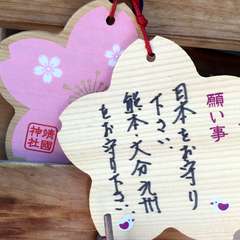 願い事
日本をお守り
下さい
熊本・大分九州
をお守り下さい
靖國
神社